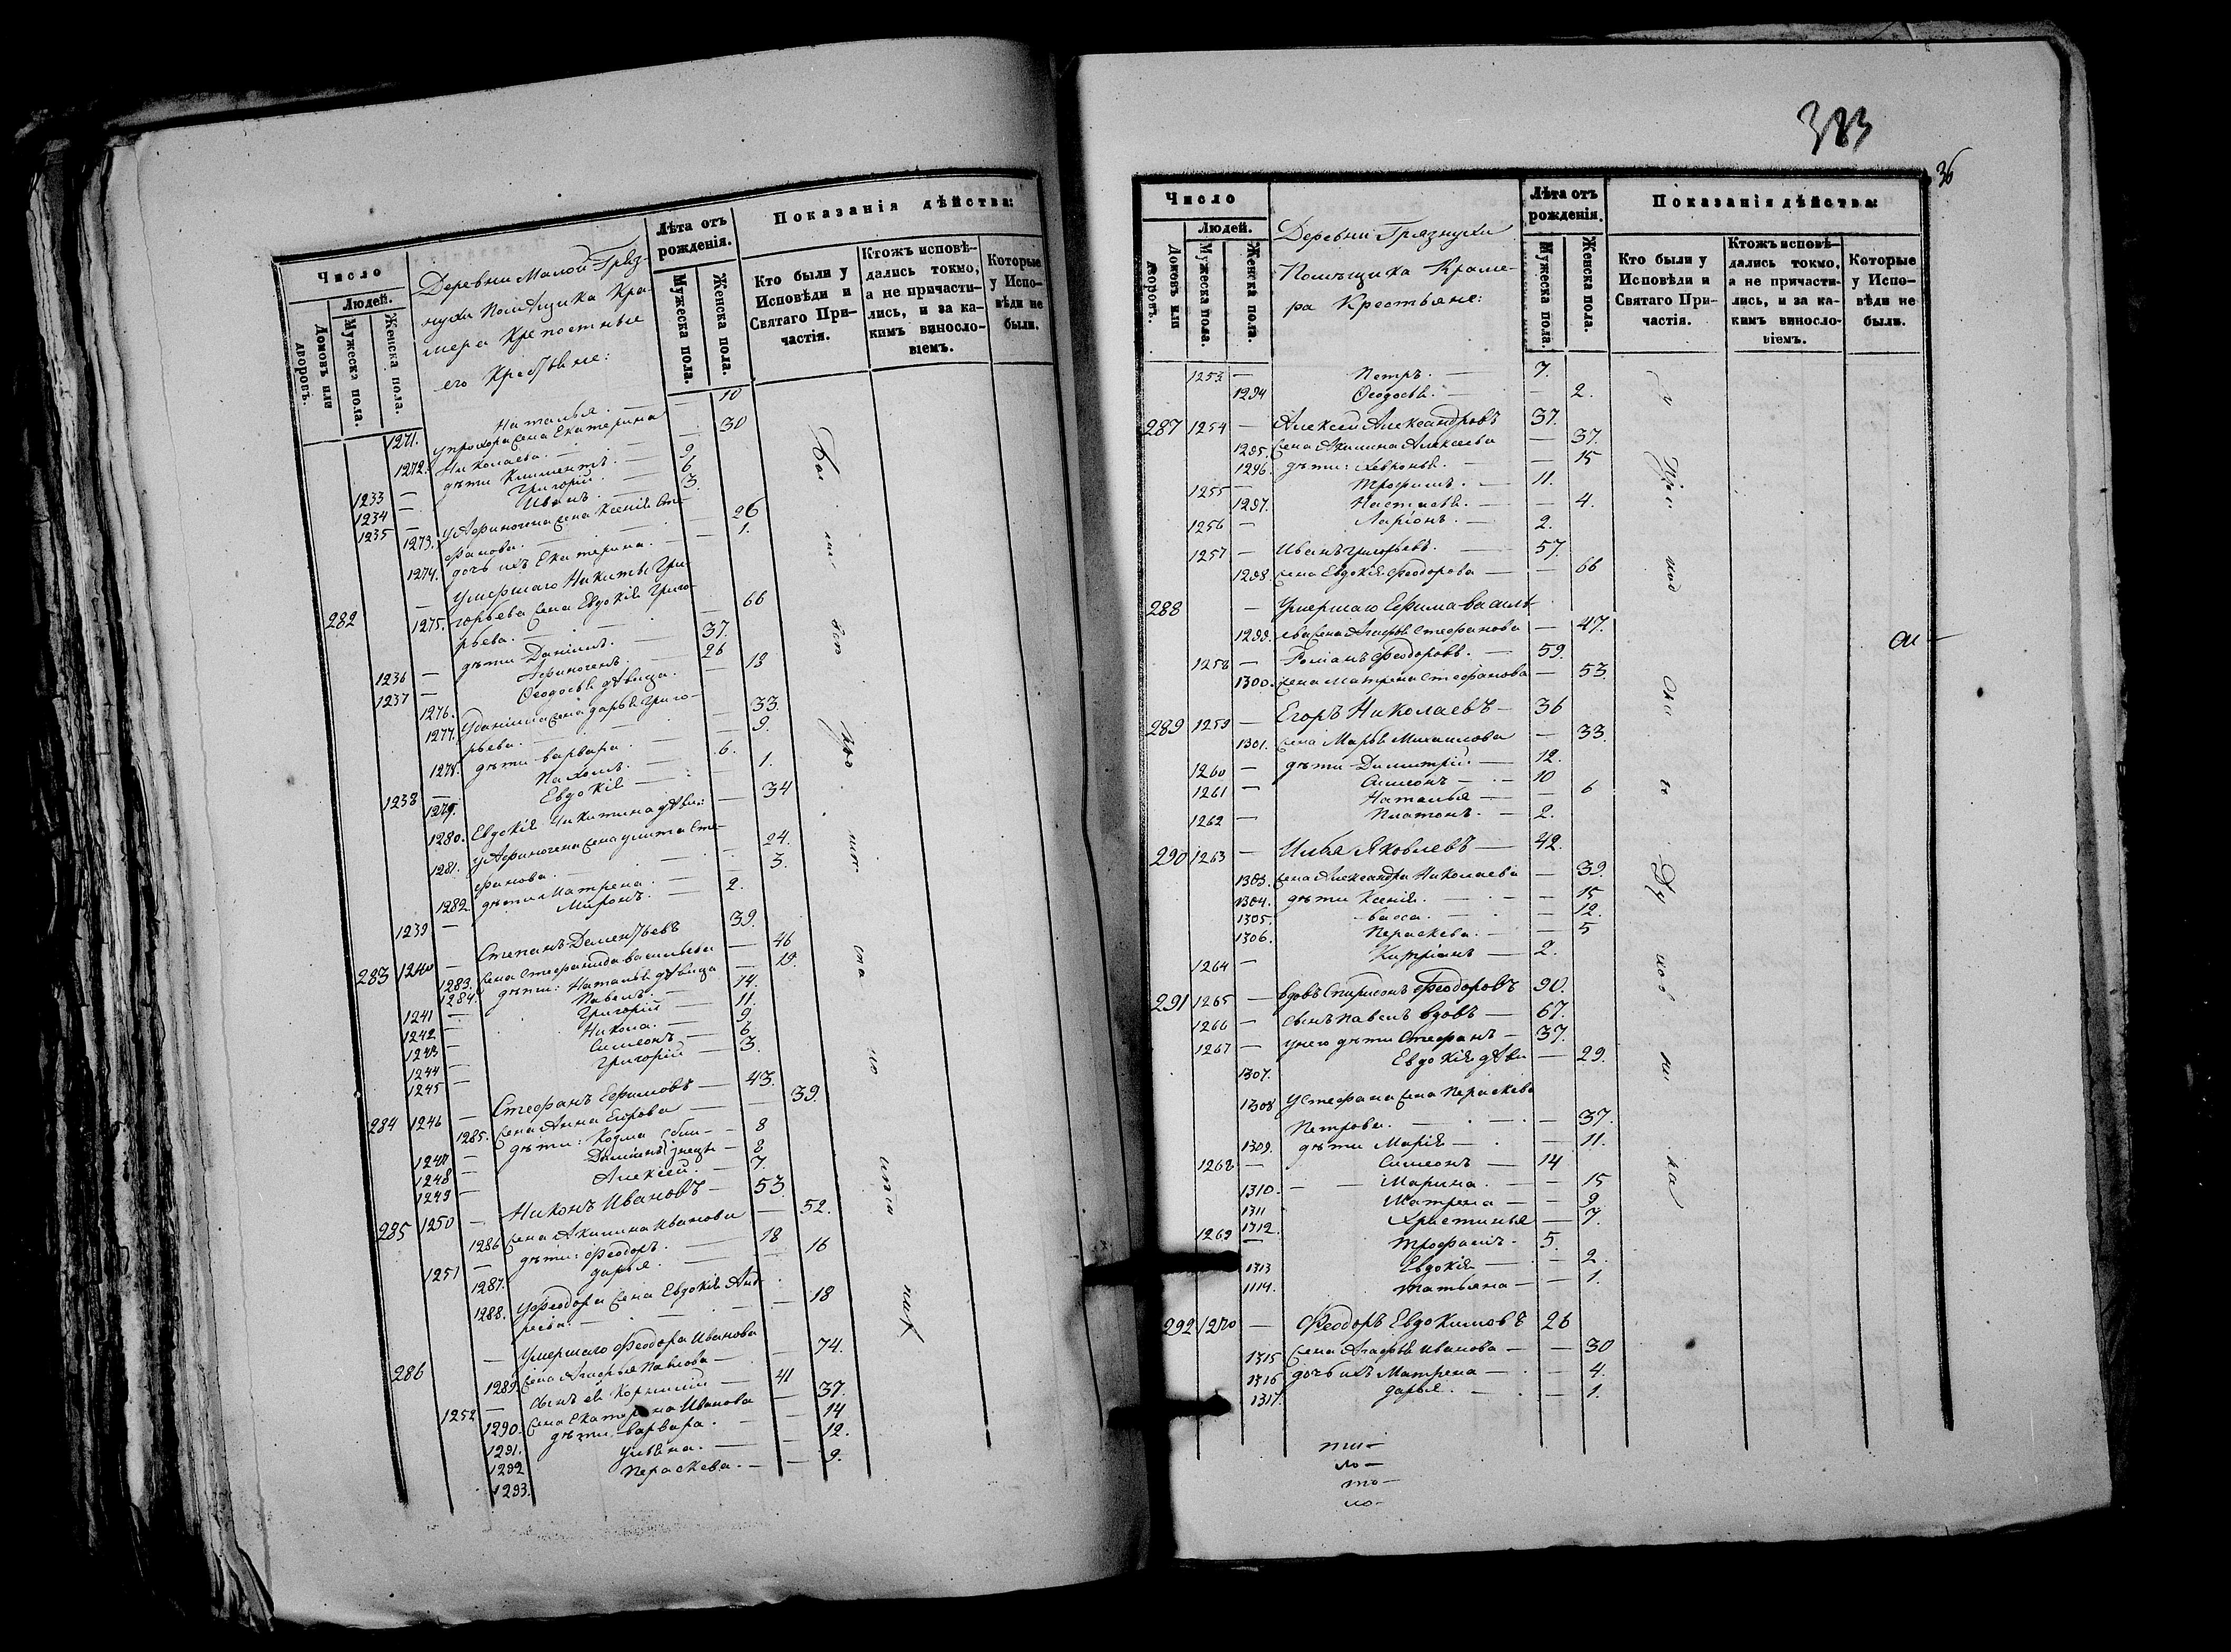 Число
Людей.
Домовъ или дворовъ.
Мужеска пола.
Женска пола.
Деревни Малой Гряз-
нухи Помѣщика Кра-
мера Крепостные
его Крестьяне:
Лѣта отъ рожденія.
Мужеска пола.
Женска пола.
Показанія дѣйства:
Кто были у Исповѣди и Святаго При-частія.
Ктожъ исповѣ-дались токмо, а не причасти-лись, и за ка-кимъ винносло-віемъ.
Которые у Испо-вѣди не были.
1271. Наталья. — — 10
1272. у прохора жена Екатерина
Николаева. — — 30
1233 — дѣти Климентъ. — 9
1234 — Григорій. — 6
1235 — Иванъ. — 3.
1273. у Афиногена жена Ксенія Сте-
фанова. — — 26
1274. дочь ихъ Екатерина. — — 1.
282 — умершаго Никиты Гри-
1275. горьева жена Евдокія Григо-
рьева. — — 66
1236 — дѣти Даніилъ. — 37.
1237 — Афиногенъ. — 26
1276. Ѳеодосья дѣвица. — — 13
1277. У даніила жена дарья Григо-
рьева. — — 33.
1278. дѣти варвара. — — 9.
1238 — Пахомъ. — 6.
1279. Евдокія — — 1.
1280. Евдокія Никитина дѣви: — 34
1281. у Афиногена жена улита Сте-
фанова. — — 24.
1282. дѣти Матрена. — — 3.
1239 — Миронъ. — 2.
283 1240 — Степанъ Дементьевъ 39.
1283. жена Стефанида васильева — 46
1284. дѣти: Наталья дѣвица — 19.
1241 — Павелъ. — 14.
1242 — Григорій — 11.
1243 — Никола. — 9
1244 — Симеонъ — 6
1245 — Григорій — 3.
284 1246 — Стефанъ Ефимовъ — 43.
1285. жена Анна Егорова — — 39.
1247 — дѣти: Козма — 8
1248 — Даміанъ — 8
1249 — Алексей. — 7.
285 1250 — Никонъ Ивановъ — 53.
1286 жена Акилина Иванова — 52.
1251 — дѣти: Феодоръ. — 18
1287. дарья. — — 16
1288. у Феодора жена Евдокія Анд-
реева. — — 18
286 — Умершаго Феодора Иванова
1289. жена Агафья Павлова — — 74.
1252 — сынъ ея Корнилій — 41
1290. жена Екатерина Иванова — 37.
1291. дѣти варвара. — — 14
1292 Ульяна. — — 12.
1293. Пераскева. — — 9.
383
36
Число
Людей.
Домовъ или дворовъ.
Мужеска пола.
Женска пола.
Деревни Грязнухи
Помѣщика Краме-
ра Крестьяне:
Лѣта отъ рожденія.
Мужеска пола.
Женска пола.
Показанія дѣйства:
Кто были у Исповѣди и Святаго При-частія.
Ктожъ исповѣ-дались токмо, а не причасти-лись, и за ка-кимъ винносло-віемъ.
Которые у Испо-вѣди не были.
1253 — Петръ. — 7.
1294 Ѳеодосья. — — 2.
287 1254 — Алексей Александровъ 37.
1295. жена Акилина Алексеева — 37.
1296. дѣти: Хевронья. — — 15
1255 — Трофимъ. — 11.
1297. Настасья. — — 4.
1256 — Ларіонъ. — 2.
1257 — Иванъ Григорьевъ. — 57.
1298. жена Евдокія Феодорова — — 66
288 — Умершаго Ефима Василь-
1299. ева жена Агафья Стефанова — 47.
1258 — Романъ Феодоровъ. — 59.
1300. жена Матрена Стефанова — 53.
289 1259 — Егоръ Николаевъ — 36
1301. жена Марья Михаилова — 33.
1260 — дѣти Димитрій. — 12.
1261 — Симеонъ — 10
Наталья — — 6
1262 — Платонъ. — 2.
290 1263 — Илья Яковлевъ — 42.
1303. жена Александра Николаева — 39.
1304. дѣти Ксенія. — — 15
1305. васса. — — 12.
1306. Пераскева. — — 5
1264 — Кипріанъ — 2.
291 1265 — вдовъ Спиридонъ Феодоровъ 90.
1266 — сынъ Павелъ вдовъ — 67.
1267 — у него дѣти Стефанъ — 37.
1307. Евдокія дѣви — 29.
1308 У Стефана жена Пераскева
Петрова. — — 37.
1309. дѣти Марія — — 11.
1268 — Симеонъ — 14
1310. — — Марина. — — 15
1311 Матрена — — 9
1312. Христинья — 7.
1269 — Трофимъ. — 5.
1313 Евдокія — — 2.
1114. татьяна — — 1.
292 1270 — Феодоръ Евдокимовъ 26
1315 жена Агафья Иванова — — 30
1316 дочь ихъ Матрена — — 4.
1317. дарья. — — 1.